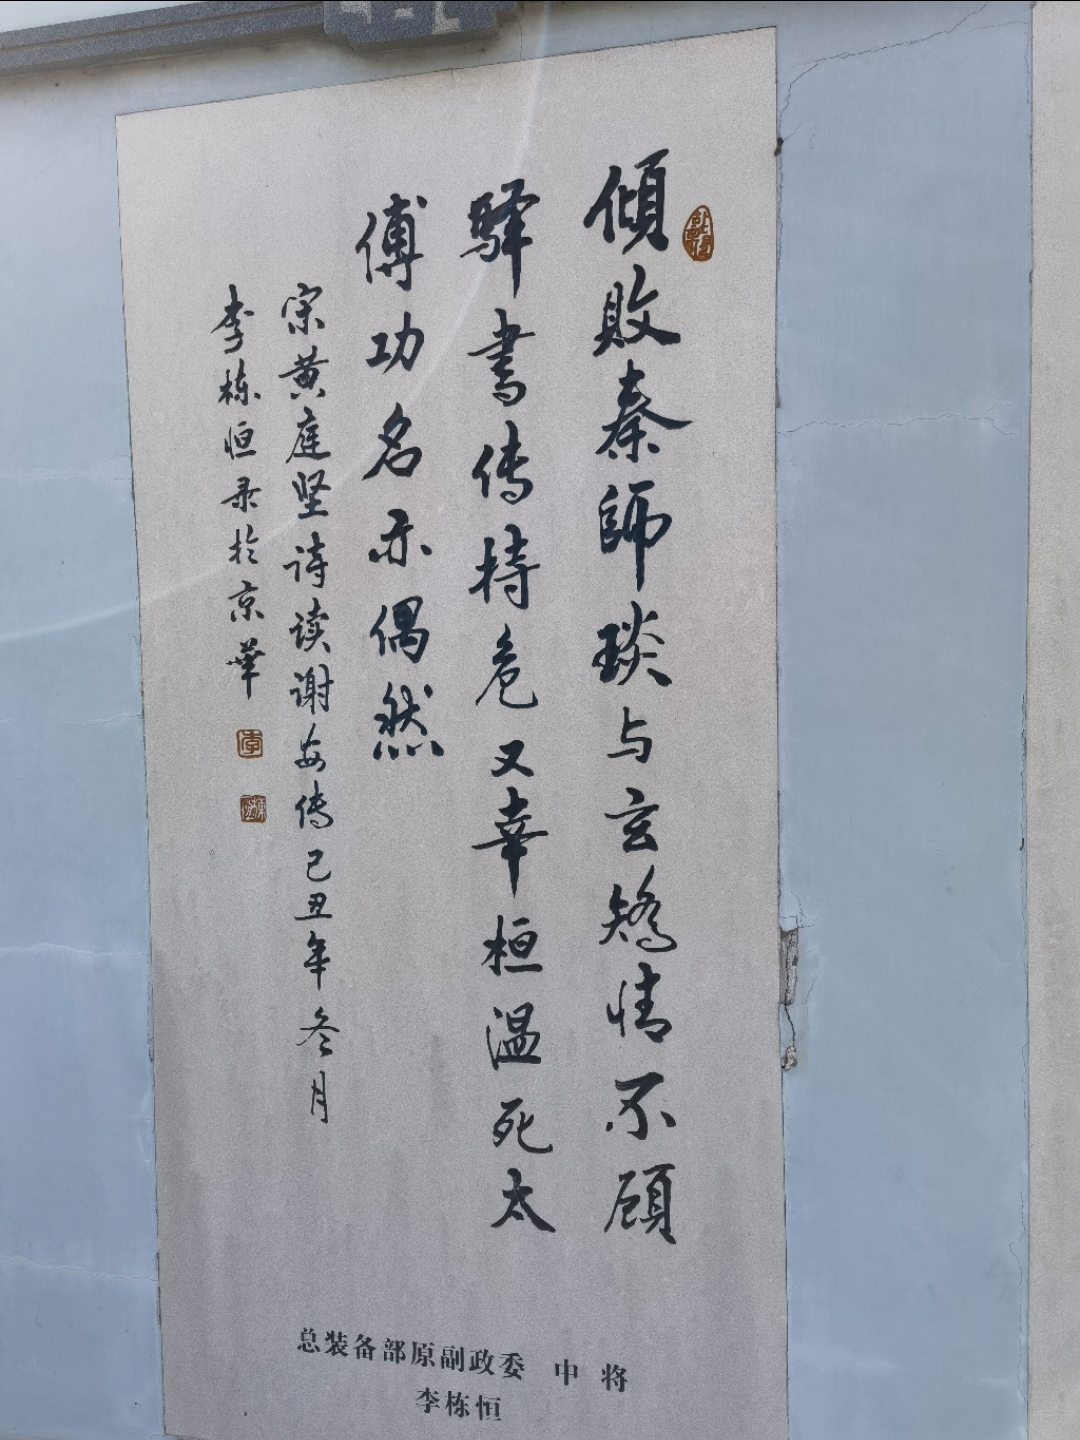 倾败秦師琰与玄矯情不顧
驿書传持危又幸桓温死太
傅功名亦偶然
宋黄庭坚诗读谢安传己丑年冬月
李栋恒录于京華
总装备部原副政委 中将
李栋恒